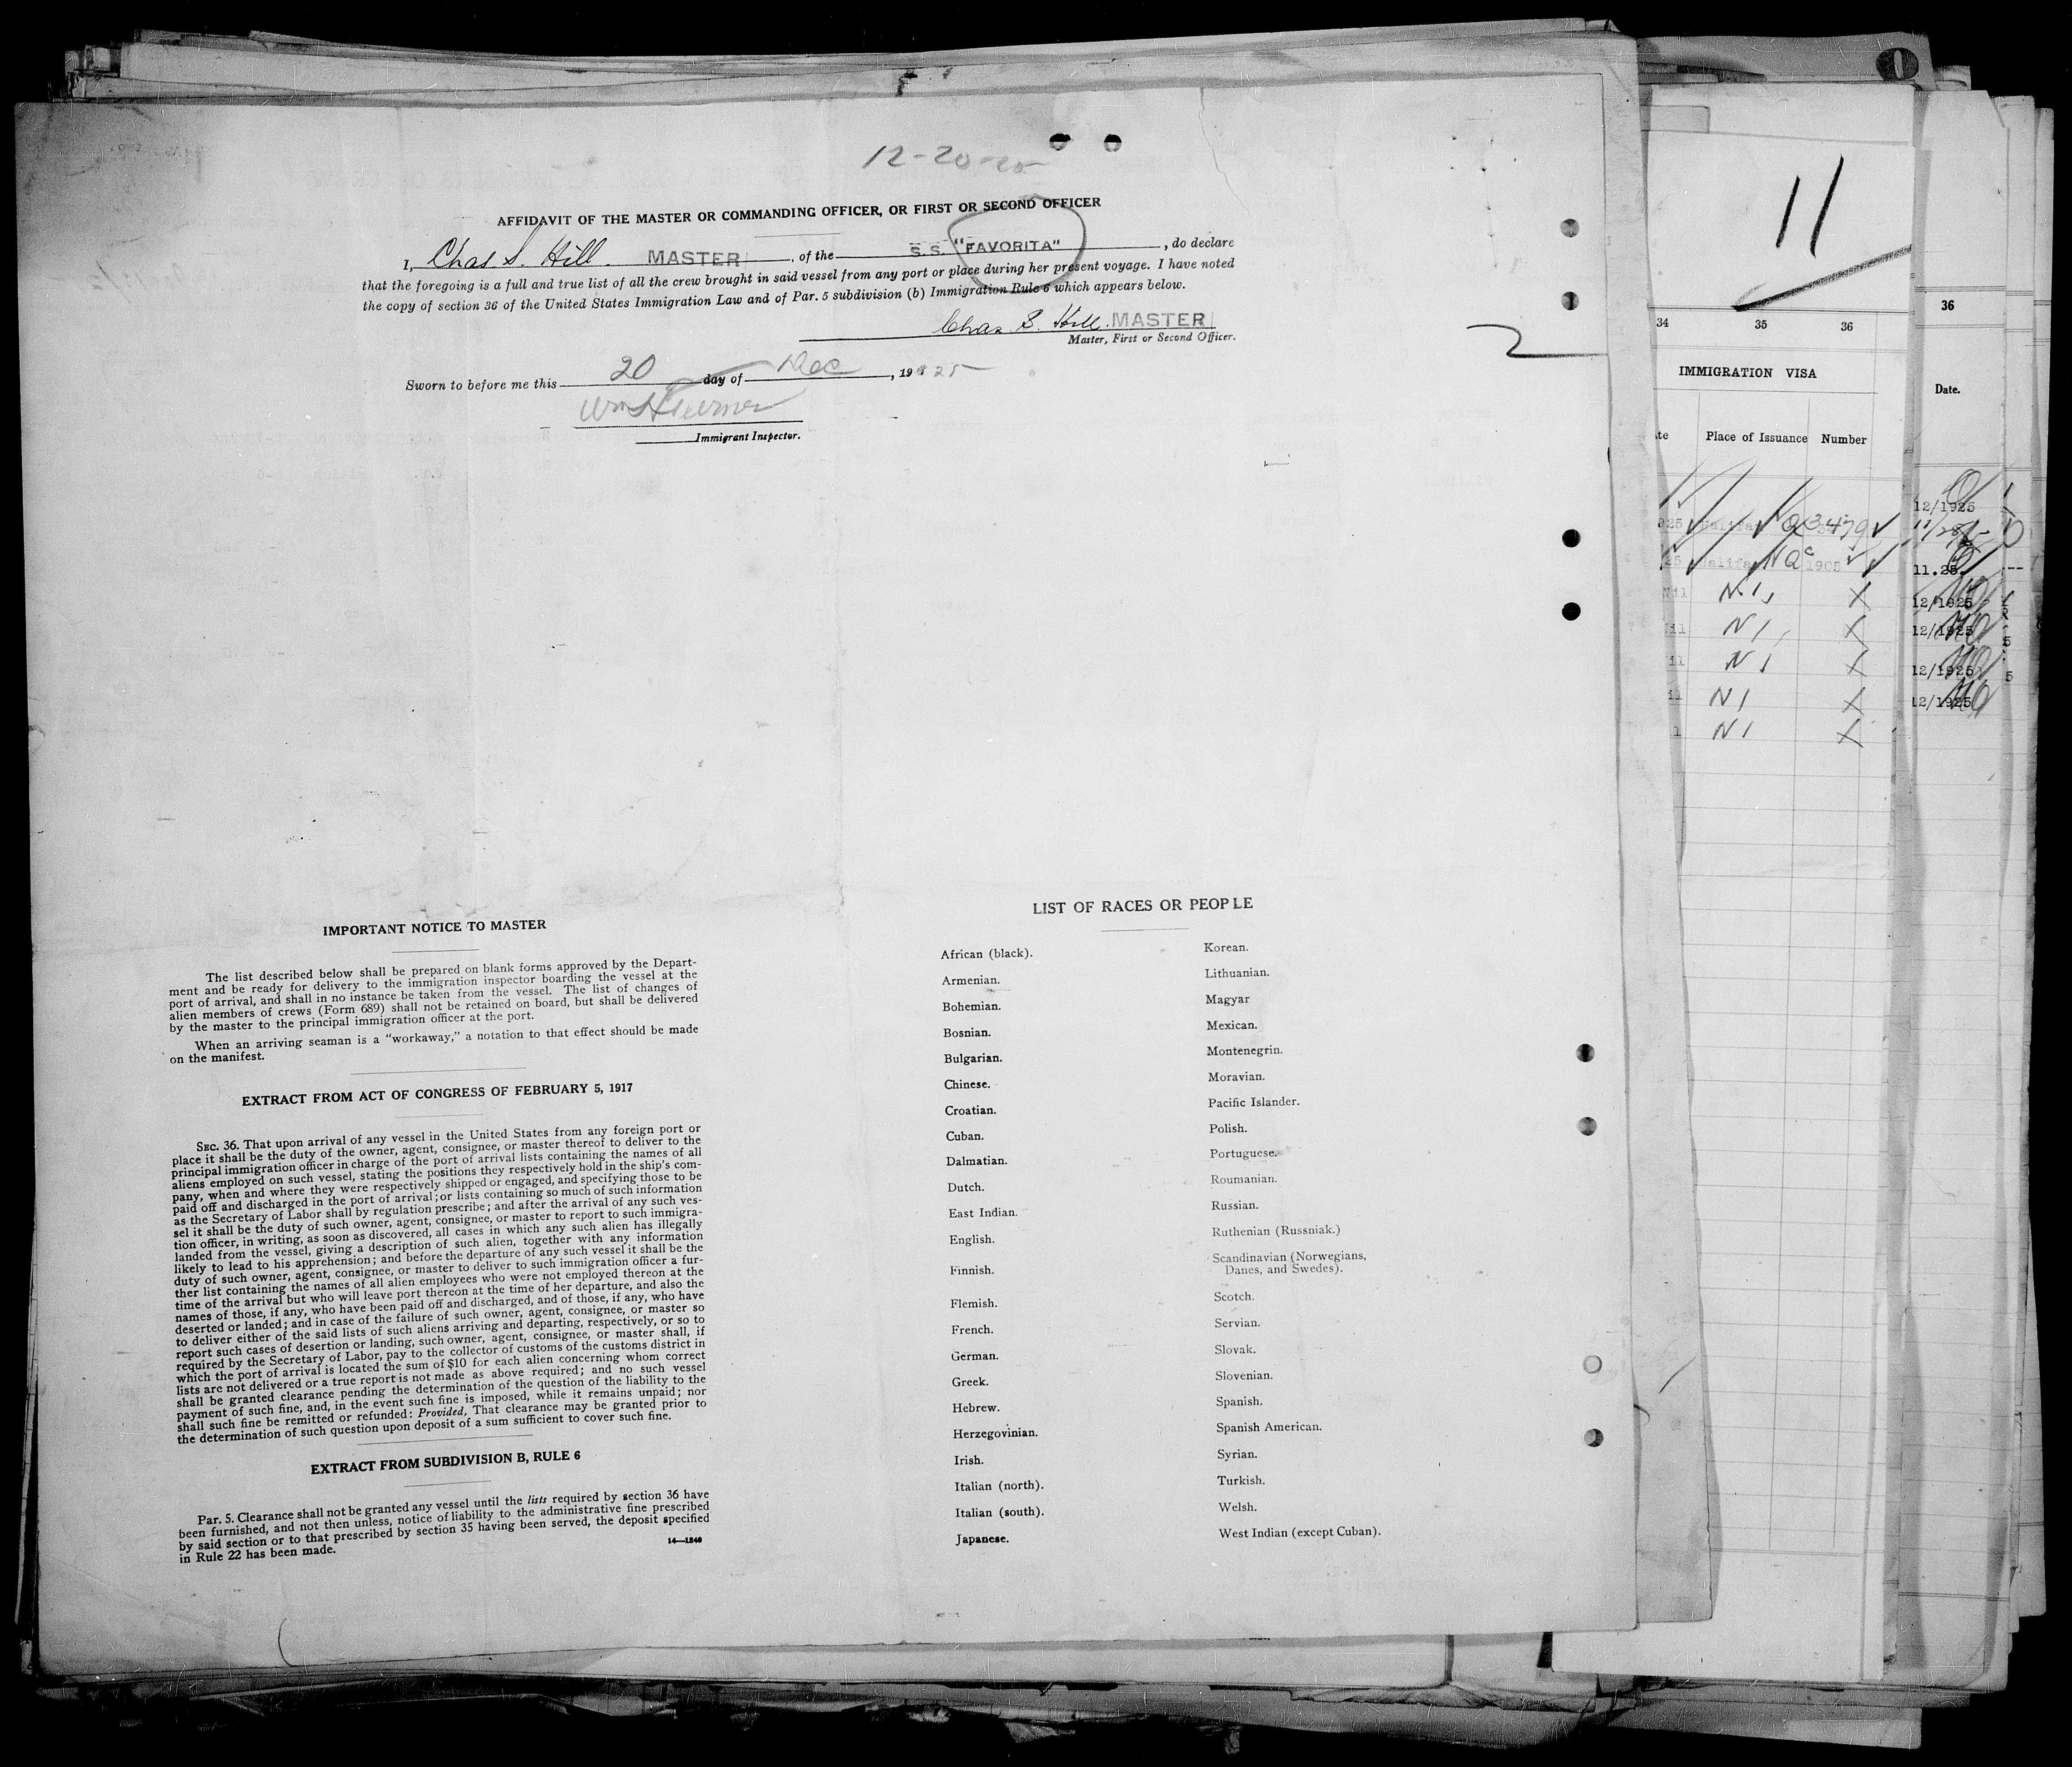 12-20-25
AFFIDAVIT OF THE MASTER OR COMMANDING OFFICER, OR FIRST OR SECOND OFFICER
I, Chas S. Hill. MASTER, of the S. S. "FAVORITA", do declare
that the foregoing is a full and true list of all the crew brought in said vessel from any port or place during her present voyage. I have noted
the copy of section 36 of the United States Immigration Law and of Par. 5 subdivision (b) Immigration Rule 6 which appears below.
Chas S. Hill. MASTER
Master, First or Second Officer.
Sworn to before me this 20 day of Dec, 1925
Wm H Turner
Immigrant Inspector.
IMPORTANT NOTICE TO MASTER
The list described below shall be prepared on blank forms approved by the Depart-
ment and be ready for delivery to the immigration inspector boarding the vessel at the
port of arrival, and shall in no instance be taken from the vessel. The list of changes of
alien members of crews (Form 689) shall not be retained on board, but shall be delivered
by the master to the principal immigration officer at the port.
When an arriving seaman is a "workaway," a notation to that effect should be made
on the manifest.
EXTRACT FROM ACT OF CONGRESS OF FEBRUARY 5, 1917
SEC. 36. That upon arrival of any vessel in the United States from any foreign port or
place it shall be the duty of the owner, agent, consignee, or master thereof to deliver to the
principal immigration officer in charge of the port of arrival lists containing the names of all
aliens employed on such vessel, stating the positions they respectively hold in the ship's com-
pany, when and where they were respectively shipped or engaged, and specifying those to be
paid off and discharged in the port of arrival; or lists containing so much of such information
as the Secretary of Labor shall by regulation prescribe; and after the arrival of any such ves-
sel it shall be the duty of such owner, agent, consignee, or master to report to such immigra-
tion officer, in writing, as soon as discovered, all cases in which any such alien has illegally
landed from the vessel, giving a description of such alien, together with any information
likely to lead to his apprehension; and before the departure of any such vessel it shall be the
duty of such owner, agent, consignee, or master to deliver to such immigration officer a fur-
ther list containing the names of all alien employees who were not employed thereon at the
time of the arrival but who will leave port thereon at the time of her departure, and also the
names of those, if any, who have been paid off and discharged, and of those, if any, who have
deserted or landed; and in case of the failure of such owner, agent, consignee, or master so
to deliver either of the said lists of such aliens arriving and departing, respectively, or so to
report such cases of desertion or landing, such owner, agent, consignee, or master shall, if
required by the Secretary of Labor, pay to the collector of customs of the customs district in
which the port of arrival is located the sum of $10 for each alien concerning whom correct
lists are not delivered or a true report is not made as above required; and no such vessel
shall be granted clearance pending the determination of the question of the liability to the
payment of such fine, and, in the event such fine is imposed, while it remains unpaid; nor
shall such fine be remitted or refunded: Provided, That clearance may be granted prior to
the determination of such question upon deposit of a sum sufficient to cover such fine.
EXTRACT FROM SUBDIVISION B, RULE 6
Par. 5. Clearance shall not be granted any vessel until the lists required by section 36 have
been furnished, and not then unless, notice of liability to the administrative fine prescribed
by said section or to that prescribed by section 35 having been served, the deposit specified
in Rule 22 has been made.
14—1240
LIST OF RACES OR PEOPLE
African (black).
Armenian.
Bohemian.
Bosnian.
Bulgarian.
Chinese.
Croatian.
Cuban.
Dalmatian.
Dutch.
East Indian.
English.
Finnish.
Flemish.
French.
German.
Greek.
Hebrew.
Herzegovinian.
Irish.
Italian (north).
Italian (south).
Japanese.
Korean.
Lithuanian.
Magyar
Mexican.
Montenegrin.
Moravian.
Pacific Islander.
Polish.
Portuguese.
Roumanian.
Russian.
Ruthenian (Russniak.)
Scandinavian (Norwegians,
Danes, and Swedes).
Scotch.
Servian.
Slovak.
Slovenian.
Spanish.
Spanish American.
Syrian.
Turkish.
Welsh.
West Indian (except Cuban).
2
11
34 35 36
IMMIGRATION VISA
Place of Issuance Number
3479
1905
N1
N1
N1
N1
N1
36
Date.
12/1925
11.25
12/1925
12/1925
12/1925
12/1925